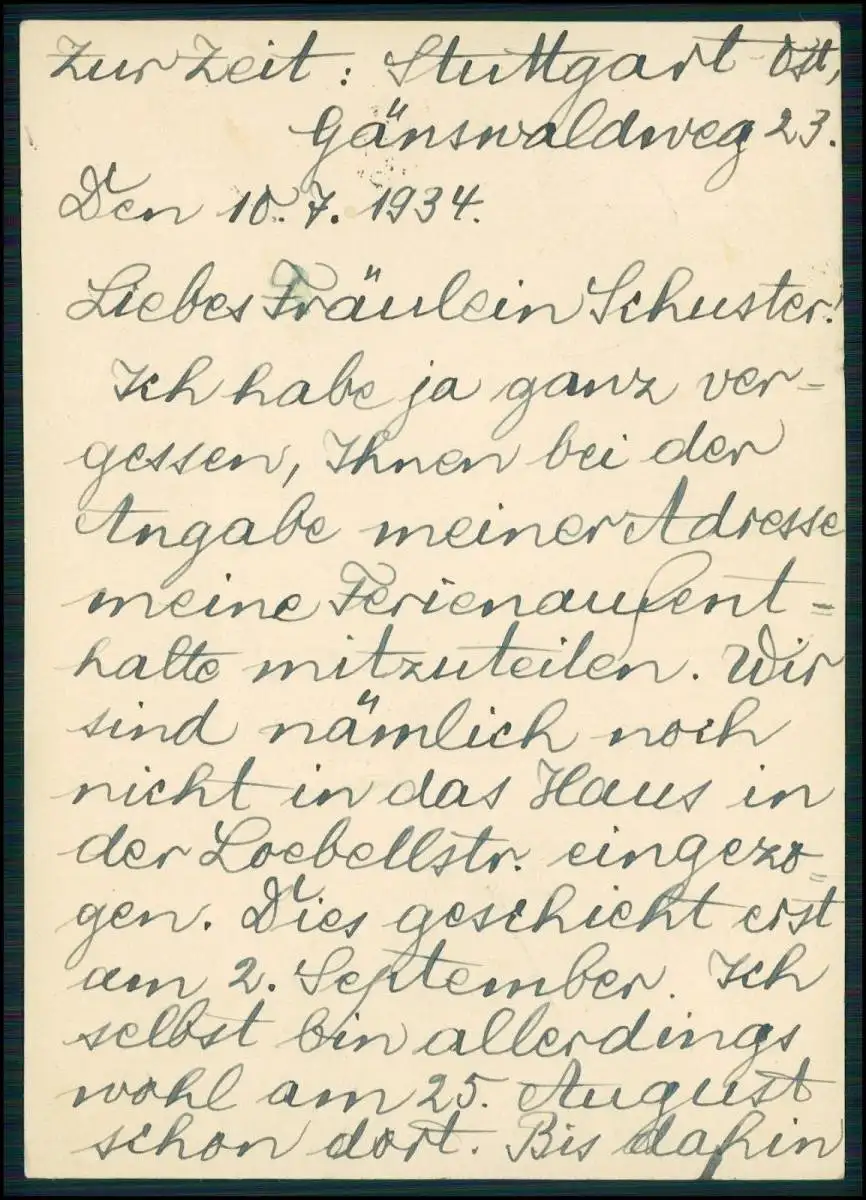 Zur Zeit: Stuttgart-Ost,
Gänswaldweg 23.
Den 10. 7. 1934.
Liebes Fräulein Schuster!
Ich habe ja ganz ver=
gessen, Ihnen bei der
Angabe meiner Adresse
meine Ferienaufent=
halte mitzuteilen. Wir
sind nämlich noch
nicht in das Haus in
der Loebellstr. eingezo=
gen. Dies geschieht erst
am 2. September. Ich
selbst bin allerdings
wohl am 25. August
schon dort. Bis dahin